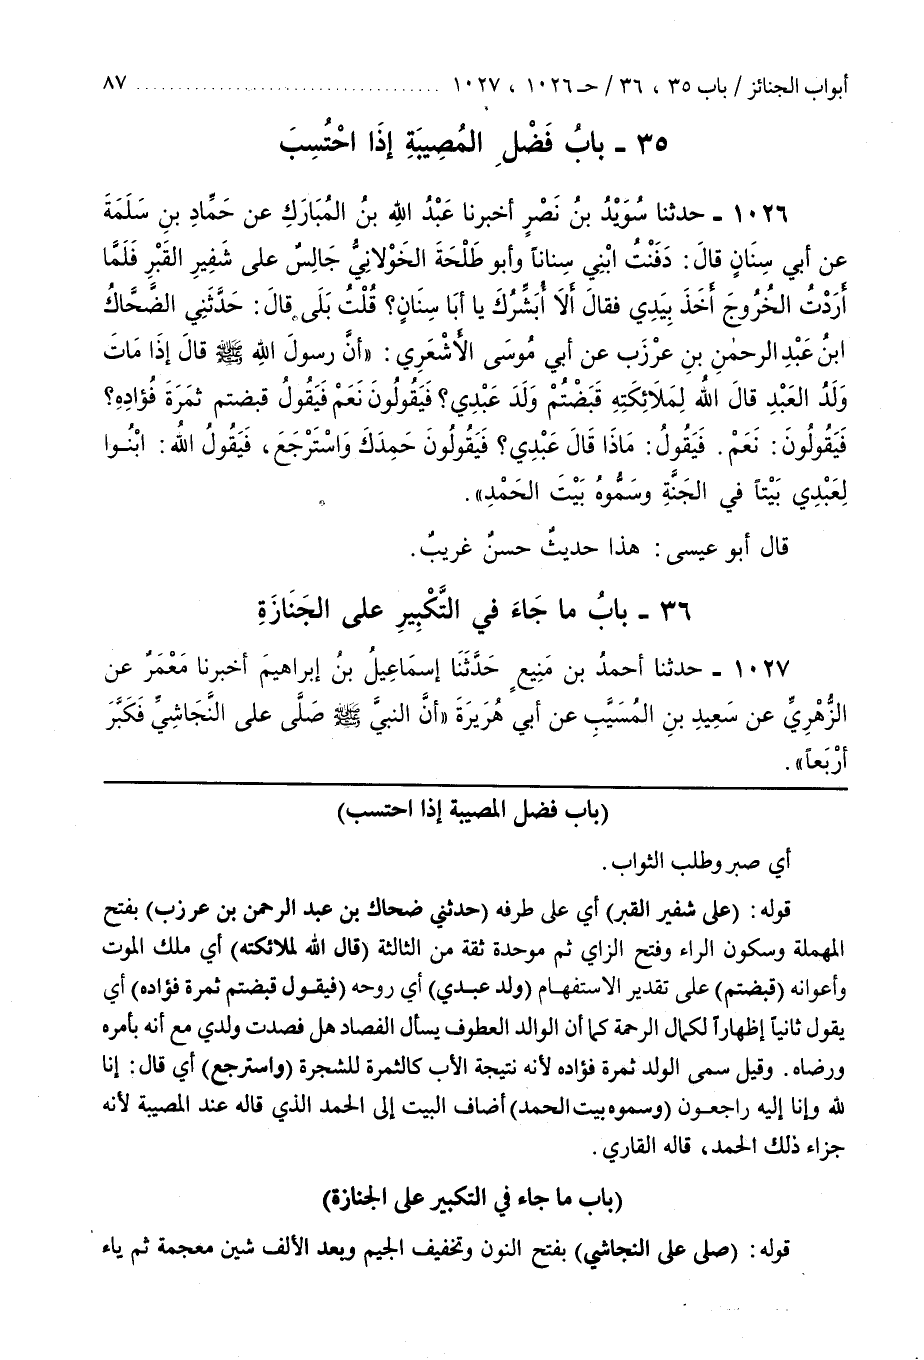 أبواب الجنائز / باب ٣٥ ، ٣٦ / حـ ١٠٢٦ ، ١٠٢٧ ................................ ٨٧
٣٥ ـ بابُ فَضْلِ المُصِيبَةِ إذَا احْتُسِبَ
١٠٢٦ ـ حدثنا سُوَيْدُ بنُ نَصْرٍ أخبرنا عَبْدُ اللهِ بنُ المُبَارَكِ عن حَمَّادِ بنِ سَلَمَةَ
عن أبي سِنَانٍ قالَ: دَفَنْتُ ابْنِي سِناناً وأبو طَلْحَةَ الخَوْلانِيُّ جَالِسٌ على شَفِيرِ القَبْرِ فَلَمَّا
أرَدْتُ الخُرُوجَ أخَذَ بِيَدِي فقالَ ألاَ أُبَشِّرُكَ يا أبَا سِنَانٍ؟ قُلْتُ بَلَى قالَ: حَدَّثَنِي الضَّحَّاكُ
ابنُ عَبْدِ الرحمٰنِ بنِ عرْزَب عن أبي مُوسَى الأشْعَرِي: «أنَّ رسولَ اللهِ ﷺ قالَ إذَا مَاتَ
وَلَدُ العَبْدِ قالَ اللهُ لِمَلائِكتِهِ قَبَضْتُمْ وَلَدَ عَبْدِي؟ فَيَقُولُونَ نَعَمْ فَيَقُولُ قبضتم ثمرَةَ فُؤادِهِ؟
فَيَقُولُونَ: نَعَمْ. فَيَقُولُ: مَاذَا قَالَ عَبْدِي؟ فَيَقُولُونَ حَمِدَكَ وَاسْتَرْجَعَ، فَيَقُولُ اللهُ: ابْنُـوا
لِعَبْدِي بَيْتاً في الجَنَّةِ وسَمُّوهُ بَيْتَ الحَمْدِ».
قال أبو عيسى: هذا حديثٌ حسنٌ غريبٌ.
٣٦ ـ بابُ ما جَاءَ في التَّكْبِيرِ على الجَنَازَةِ
١٠٢٧ ـ حدثنا أحمدُ بن مَنِيعٍ حَدَّثَنَا إسمَاعِيلُ بنُ إبراهيمَ أخبرنا مَعْمَرٌ عن
الزُّهْرِيِّ عن سَعِيدِ بنِ المُسَيَّبِ عن أبي هُرَيرَةَ «أنَّ النبيَّ ﷺ صَلَّى على النَّجَاشِيِّ فَكَبَّرَ
أرْبَعاً».
(باب فضل المصيبة إذا احتسب)
أي صبر وطلب الثواب.
قوله: (على شفير القبر) أي على طرفه (حدثني ضحاك بن عبد الرحمن بن عرزب) بفتح
المهملة وسكون الراء وفتح الزاي ثم موحدة ثقة من الثالثة (قال الله لملائكته) أي ملك الموت
وأعوانه (قبضتم) على تقدير الاستفهـام (ولد عبـدي) أي روحه (فيقـول قبضتم ثمرة فؤاده) أي
يقول ثانياً إظهاراً لكمال الرحمة كما أن الوالد العطوف يسأل الفصاد هل فصدت ولدي مع أنه بأمره
ورضاه. وقيل سمى الولد ثمرة فؤاده لأنه نتيجة الأب كالثمرة للشجرة (واسترجع) أي قال: إنا
لله وإنا إليه راجعـون (وسموه بيت الحمد) أضاف البيت إلى الحمد الذي قاله عند المصيبة لأنه
جزاء ذلك الحمد، قاله القاري.
(باب ما جاء في التكبير على الجنازة)
قوله: (صلى على النجاشي) بفتح النون وتخفيف الجيم وبعد الألف شين معجمة ثم ياء